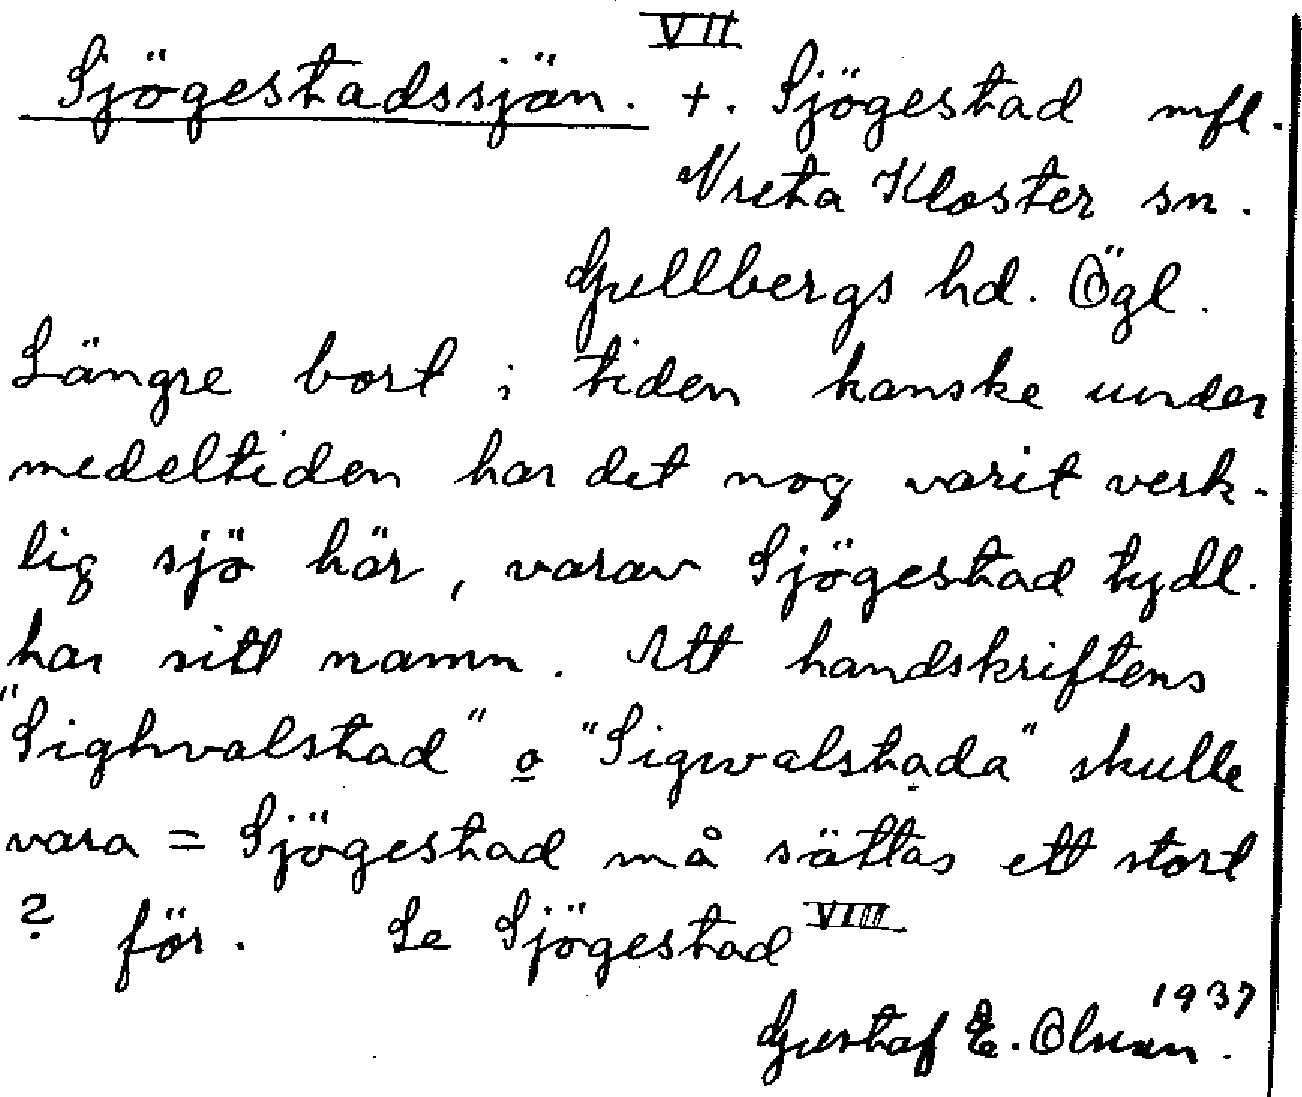 VII
Sjögestadssjön. +. Sjögestad mfl.
Vreta Kloster sn.
Gullbergs hd. Ögl.
Längre bort i tiden kanske under
medeltiden har det nog varit verk-
lig sjö här, varav Sjögestad tydl.
har sitt namn. Att handskriftens
"Sighvalstad" o "Sigwalstada" skulle
vara = Sjögestad må sättas ett stort
? för. Se Sjögestad VIII
1937
Gustaf E. Olsson.